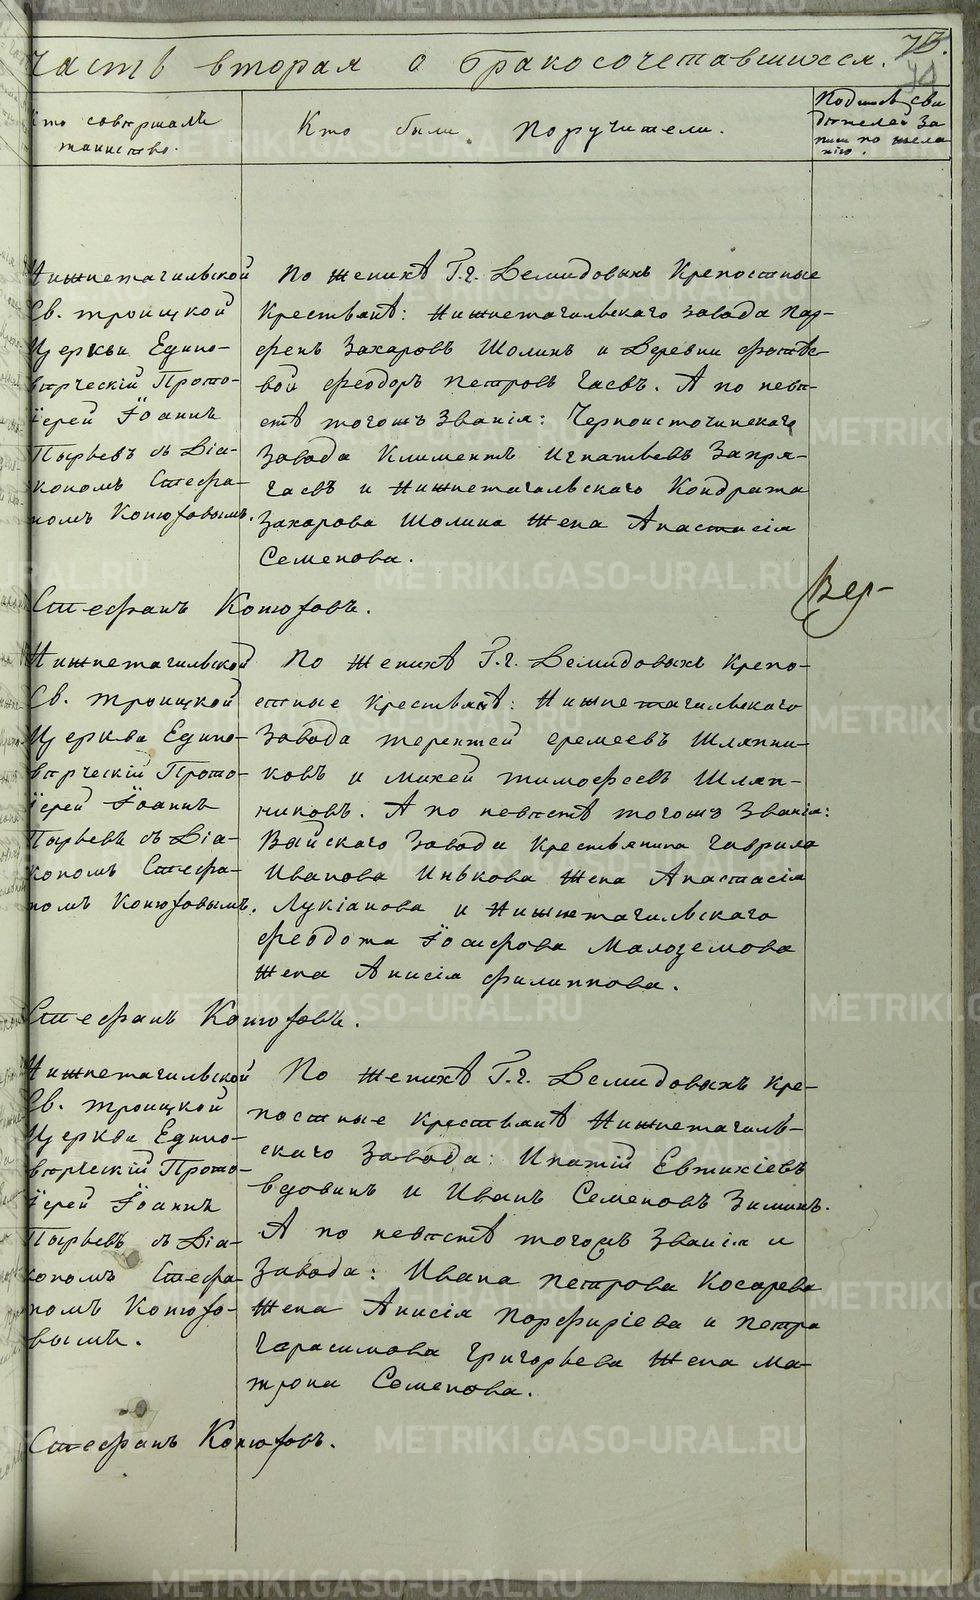 Часть вторая о бракосочетавшихся.
Кто совершалъ таинство.
Кто были поручители.
Подпись свидѣтелей записи по желанію.
Нижнетагильской
Св. Троицкой
Церкви Едино-
вѣрческій Прото-
іерей Іоаннъ
Пырьевъ съ Діа-
кономъ Стефа-
номъ Конюховымъ.
По женихѣ Г.г. Демидовыхъ Крепостные
Крестьянѣ: Нижнетагильскаго завода Пар-
фенъ Захаровъ Шолинъ и Деревни
вой Феодоръ Петровъ Гаевъ. А по невѣ-
стѣ тогожъ званія: Черноисточинскаго
Завода Климентъ Игнатьевъ Запря-
гаевъ и Нижнетагильскаго Кондрата
Захарова Шолина жена Анастасія
Семенова.
Стефанъ Конюховъ.
Вер-
Нижнетагильской
Св. Троицкой
Церкви Едино-
вѣрческій Прото-
іерей Іоаннъ
Пырьевъ съ Діа-
кономъ Стефа-
номъ Конюховымъ.
По женихѣ Г.г. Демидовыхъ Крепо-
стные Крестьянѣ: Нижнетагильскаго
Завода Терентей Еремеевъ Шляпни-
ковъ и Михей Тимофеевъ Шляп-
никовъ. А по невѣстѣ тогожъ званія:
Выйскаго Завода Крестьянина Гаврила
Иванова Инькова жена Анастасія
Лукіанова и Нижнетагильскаго
Феодота Іосифова Малоземова
жена Анисія Филиппова.
Стефанъ Конюховъ.
Нижнетагильской
Св. Троицкой
Церкви Едино-
вѣрческій Прото-
іерей Іоаннъ
Пырьевъ съ Діа-
кономъ Стефа-
номъ Конюхо-
вымъ.
По женихѣ Г.г. Демидовыхъ Кре-
постные крестьянѣ Нижнетагиль-
скаго Завода: Ипатій Евтихіевъ
Вдовинъ и Иванъ Семеновъ Зиминъ.
А по невѣстѣ тогожъ званія и
Завода: Ивана Петрова Косарева
жена Анисія Порфиріева и Петра
Гарасимова Григорьева жена Ма-
трона Семенова.
Стефанъ Конюховъ.
METRIKI.GASO-URAL.RU